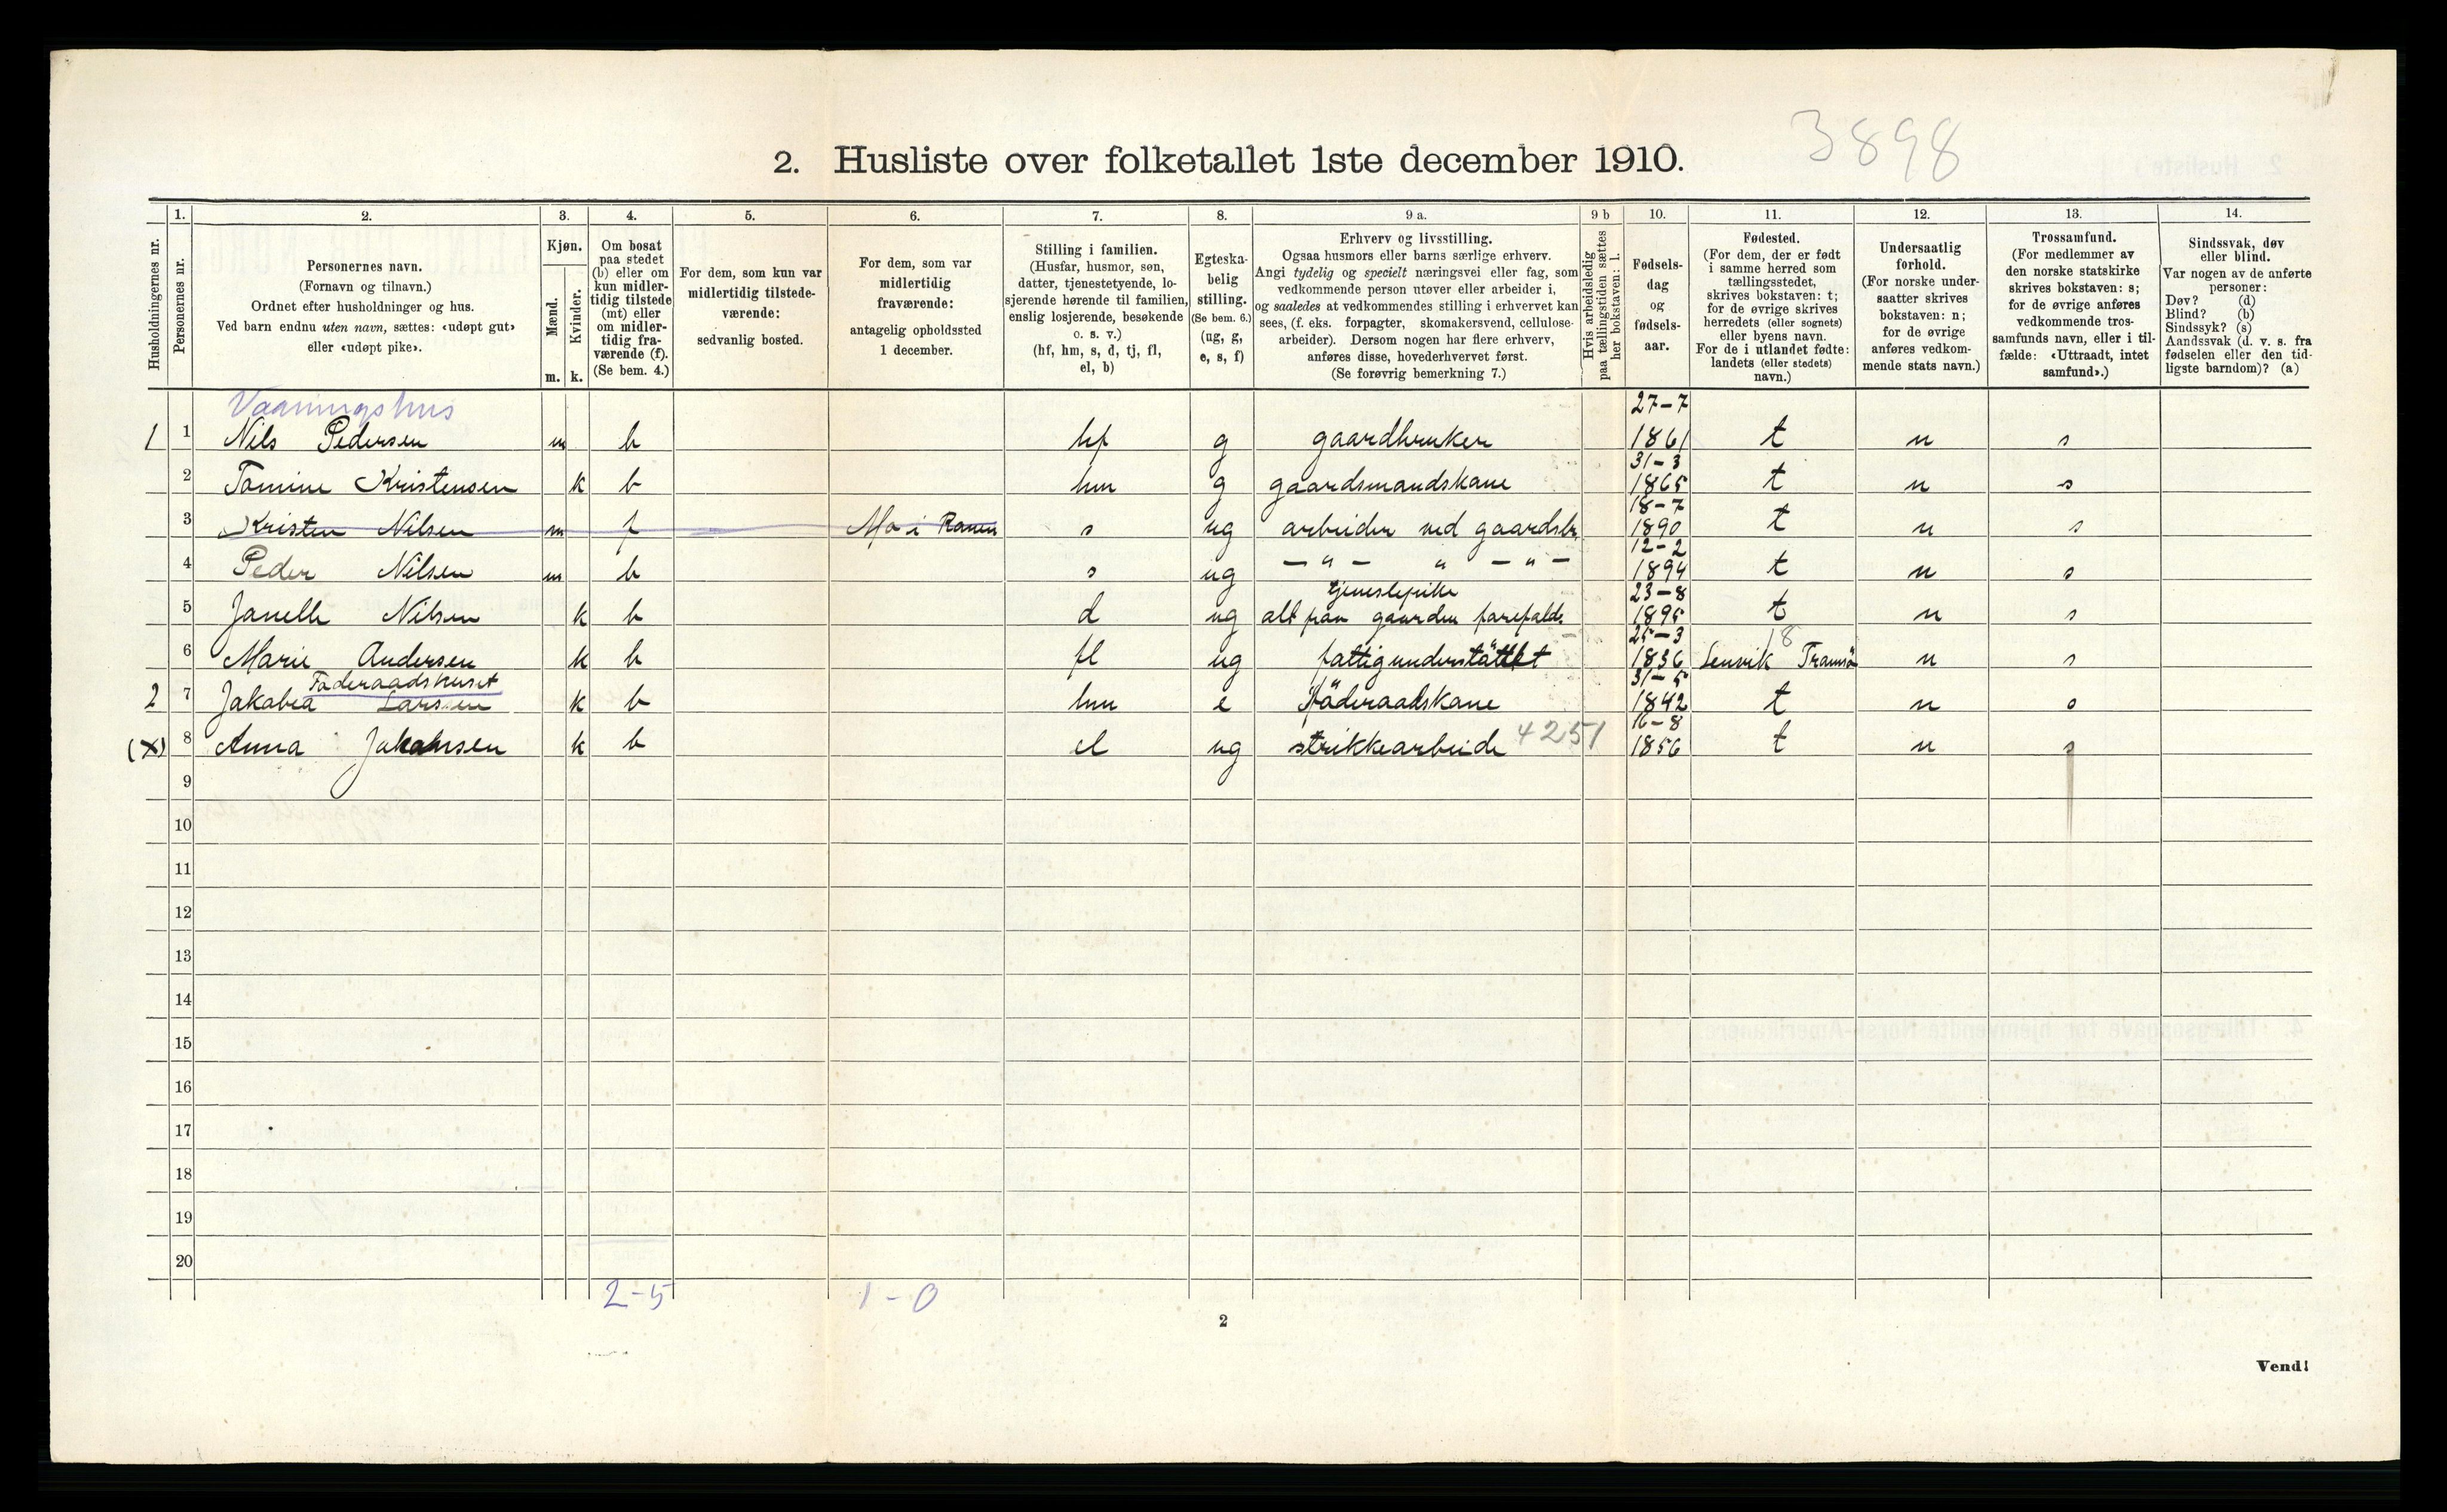 3898
2. Husliste over folketallet 1ste december 1910.
Husholdningernes nr.
1. Personernes nr.
2. Personernes navn. (Fornavn og tilnavn.) Ordnet efter husholdninger og hus. Ved barn endnu uten navn, sættes: «udøpt gut» eller «udøpt pike».
3. Kjøn. Mænd. m. Kvinder. k.
4. Om bosat paa stedet (b) eller om kun midlertidig tilstede (mt) eller om midlertidig fraværende (f). (Se bem. 4.)
5. For dem, som kun var midlertidig tilstedeværende: sedvanlig bosted.
6. For dem, som var midlertidig fraværende: antagelig opholdssted 1 december.
7. Stilling i familien. (Husfar, husmor, søn, datter, tjenestetyende, losjerende hørende til familien, enslig losjerende, besøkende o. s. v.) (hf, hm, s, d, tj, fl, el, b)
8. Egteskabelig stilling. (Se bem. 6.) (ug, g, e, s, f)
9 a. Erhverv og livsstilling. Ogsaa husmors eller barns særlige erhverv. Angi tydelig og specielt næringsvei eller fag, som vedkommende person utøver eller arbeider i, og saaledes at vedkommendes stilling i erhvervet kan sees, (f. eks. forpagter, skomakersvend, cellulosearbeider). Dersom nogen har flere erhverv, anføres disse, hovederhvervet først. (Se forøvrig bemerkning 7.)
9 b Hvis arbeidsledig paa tællingstiden sættes her bokstaven: l.
10. Fødselsdag og fødselsaar.
11. Fødested. (For dem, der er født i samme herred som tællingsstedet, skrives bokstaven: t; for de øvrige skrives herredets (eller sognets) eller byens navn. For de i utlandet fødte: landets (eller stedets) navn.)
12. Undersaatlig forhold. (For norske undersaatter skrives bokstaven: n; for de øvrige anføres vedkommende stats navn.)
13. Trossamfund. (For medlemmer av den norske statskirke skrives bokstaven: s; for de øvrige anføres vedkommende trossamfunds navn, eller i tilfælde: «Uttraadt, intet samfund».)
14. Sindssvak, døv eller blind. Var nogen av de anførte personer: Døv? (d) Blind? (b) Sindssyk? (s) Aandssvak (d. v. s. fra fødselen eller den tidligste barndom)? (a)
Vaaningshus
1 1 Nils Pedersen m b hf g gaardbruker 27-7 1861 t n s
2 Tomine Kristensen k b hm g gaardsmandskane 31-3 1865 t n s
3 Kristen Nilsen m f Mo i Ranen s ug arbeider ved gaardsbr. 18-7 1890 t n s
4 Peder Nilsen m b s ug - " - " - " - 12-2 1894 t n s
5 Janelle Nilsen k b d ug tjenestepike alt paa gaarden forefald. 23-8 1895 t n s
6 Marie Andersen k b fl ug fattigunderstöttet 25-3 1836 Lenvik Tromsö 18 n s
Föderaadshuset
2 7 Jakabea Larsen k b hm e föderaadskane 31-5 1842 t n s
(x) 8 Anna Jakobsen k b el ug strikkearbeide 4251 16-8 1856 t n s
9
10
11
12
13
14
15
16
17
18
19
20
2-5 1-0
2
Vend!